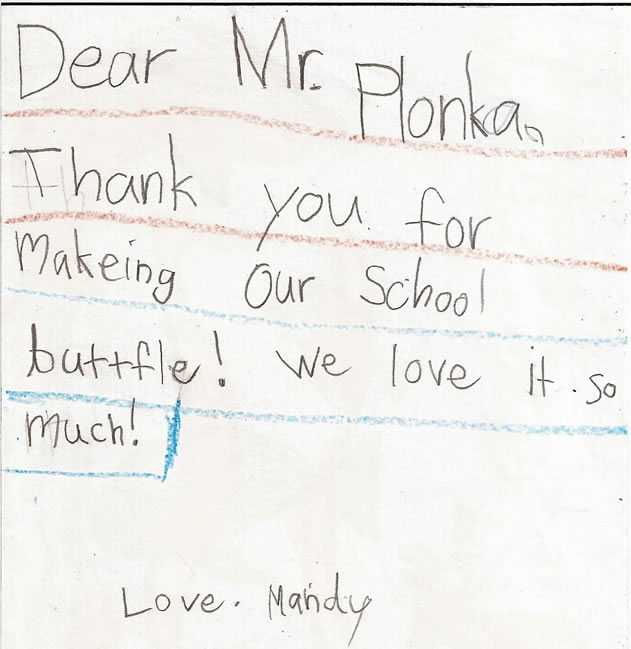 Dear Mr. Plonka,
Thank you for
Makeing Our School
buttfle! We love it. so
much!
Love. Mandy